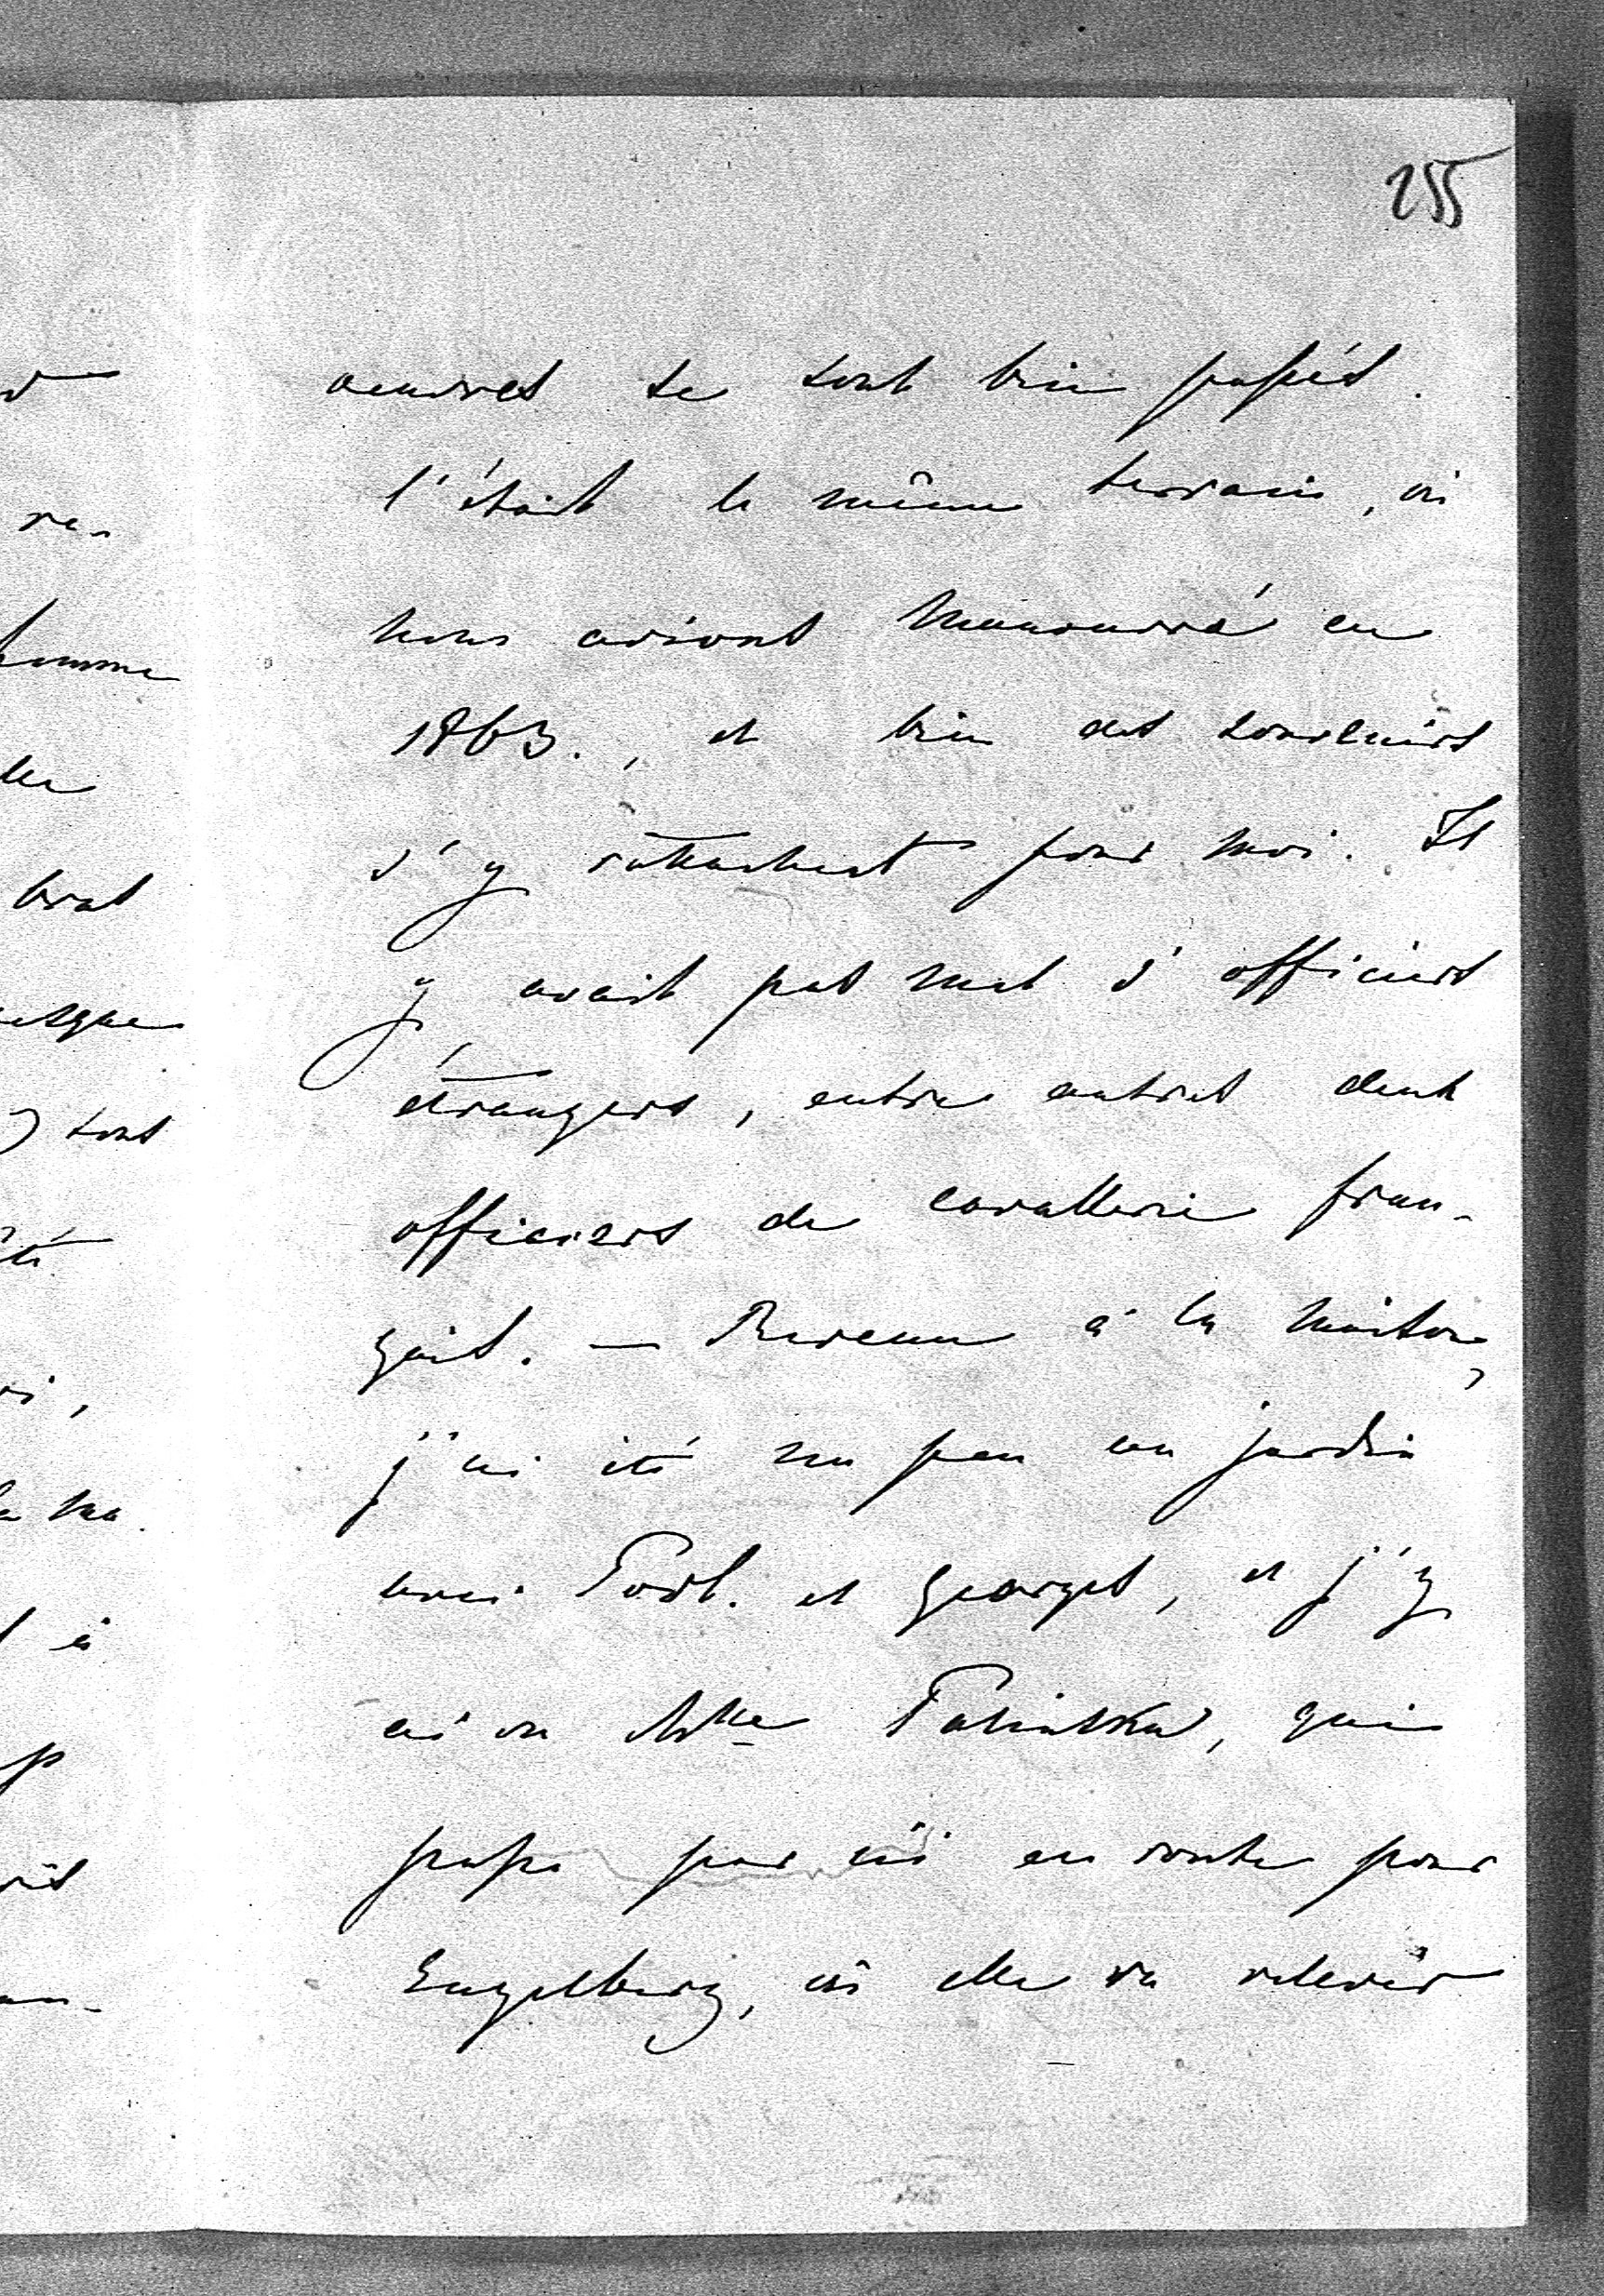 255
œuvres se sont bien passés.
C'était le même terrain, où
nous avions manouvré en
1863., et bien des souvenirs
s'y rattachent pour moi. Il
y avait pas mal d'officiers
étrangers, entre autres deux
officiers de cavallerie fran-
çais. — Revenu à la maison,
j'ai été un peu au jardin
avec et Georges, et j'y
ai vu Mme qui
passe par ici en route pour
Engelberg, où elle va relevér
re-
homme
bras
sont
été
à